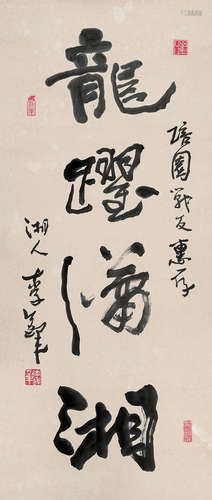 龍躍瀟湘
培園戰友惠存
湘人李鐸